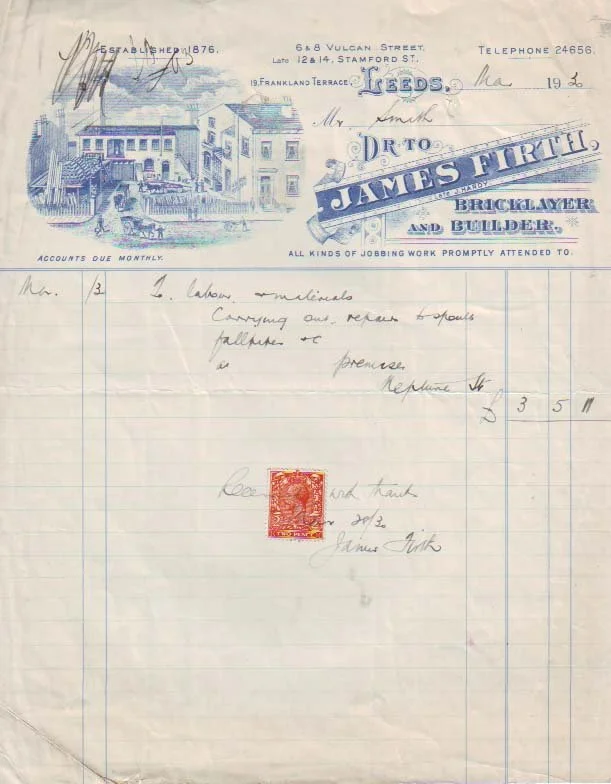 ESTABLISHED 1876.
6 & 8 VULCAN STREET,
LATE 12 & 14, STAMFORD ST.
TELEPHONE 24656.
19, FRANKLAND TERRACE,
LEEDS, Mar 1930
Mr Smith
DR TO
JAMES FIRTH,
LATE J. HARDY
BRICKLAYER
AND BUILDER.
ACCOUNTS DUE MONTHLY.
ALL KINDS OF JOBBING WORK PROMPTLY ATTENDED TO.
Mar. 13 To labour & materials
Carrying out repairs to spouts
fallpipes &c
at premises
Neptune St
£ 3 5 11
Received with thanks
20/30
James Firth
TWO PENCE